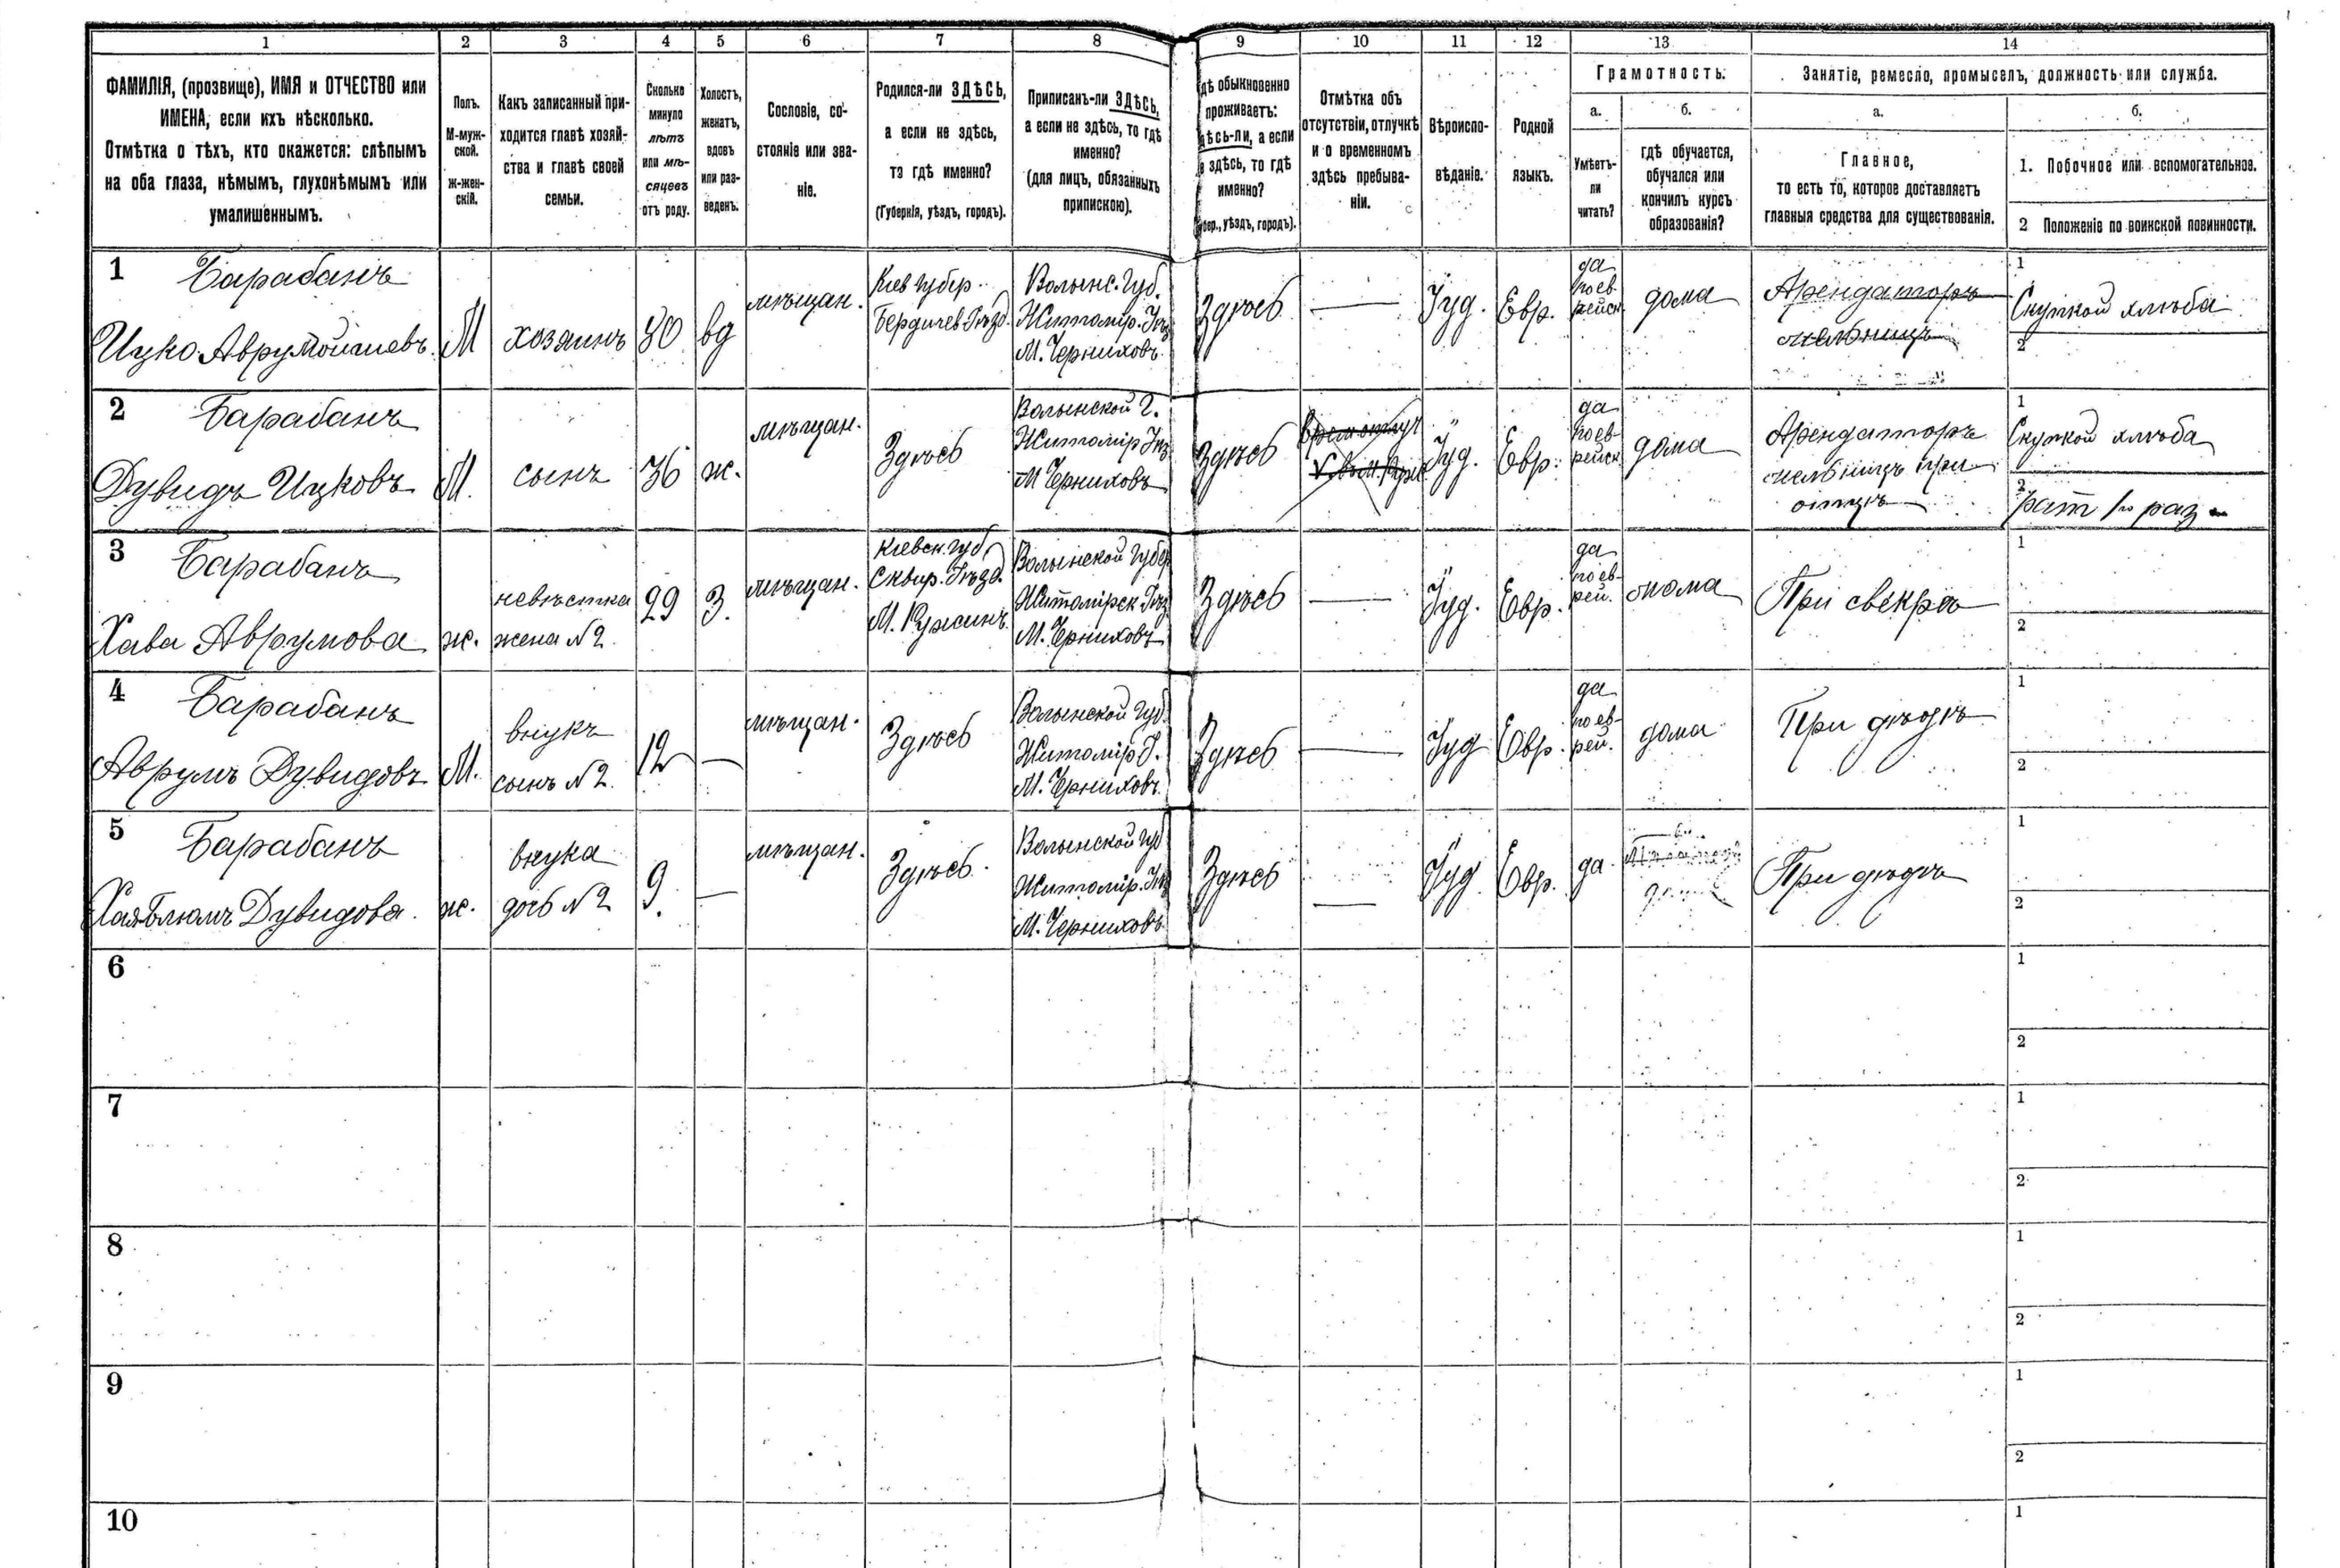 1 2 3 4 5 6 7 8 9 10 11 12 13 14
ФАМИЛІЯ, (прозвище), ИМЯ и ОТЧЕСТВО или
ИМЕНА, если ихъ нѣсколько.
Отмѣтка о тѣхъ, кто окажется: слѣпымъ
на оба глаза, нѣмымъ, глухонѣмымъ или
умалишеннымъ.
Полъ.
М-муж-
ской.
ж-жен-
скій.
Какъ записанный при-
ходится главѣ хозяй-
ства и главѣ своей
семьи.
Сколько
минуло
лѣтъ
или мѣ-
сяцевъ
отъ роду.
Холостъ,
женатъ,
вдовъ
или раз-
веденъ.
Сословіе, со-
стояніе или зва-
ніе.
Родился-ли ЗДѢСЬ,
а если не здѣсь,
то гдѣ именно?
(Губернія, уѣздъ, городъ).
Приписанъ-ли ЗДѢСЬ,
а если не здѣсь, то гдѣ
именно?
(для лицъ, обязанныхъ
припискою).
гдѣ обыкновенно
проживаетъ:
здѣсь-ли, а если
не здѣсь, то гдѣ
именно?
(Губер., уѣздъ, городъ).
Отмѣтка объ
отсутствіи, отлучкѣ
и о временномъ
здѣсь пребыва-
ніи.
Вѣроиспо-
вѣданіе.
Родной
языкъ.
Грамотность.
а.
Умѣетъ-
ли
читать?
б.
гдѣ обучается,
обучался или
кончилъ курсъ
образованія?
Занятіе, ремесло, промыселъ, должность или служба.
а.
Главное,
то есть то, которое доставляетъ
главныя средства для существованія.
б.
1. Побочное или вспомогательное.
2 Положеніе по воинской повинности.
1 Барабанъ
Ицко Аврумойшиевъ
М
хозяинъ
80
вд
мѣщан.
Кіев губер.
Бердичев Уѣзд.
Волынс. Губ.
Житомір. Уѣз
М. Черниховъ
Здѣсь
—
Іуд.
Евр.
да
по ев-
рейск
дома
Арендаторъ
мельницъ
1
Скупкой хлѣба
2
2 Барабанъ
Дувидъ Ицковъ
М.
сынъ
36
ж.
мѣщан.
Здѣсь
Волынской Г.
Житомір Уѣз
М Черниховъ
Здѣсь
Іуд.
Евр.
да
по ев-
рейск
дома
Арендаторъ
мельницъ при
отцѣ
1
Скупкой хлѣба
2
рат 1го раз
3 Барабанъ
Хава Аврумова
ж.
невѣстка
жена №2
29
З.
мѣщан.
Кіевск. губ.
Сквир. Уѣзд.
М. Ружинъ
Волынской Губер
Житомірск Уѣз
М. Черниховъ
Здѣсь
—
Іуд.
Евр.
да
по ев-
рей.
дома
При свекрѣ
1
2
4 Барабанъ
Аврумъ Дувидовъ
М.
внукъ
сынъ №2.
12
—
мѣщан.
Здѣсь
Волынской Губ.
Житомір У.
М. Черниховъ
Здѣсь
—
Іуд
Евр.
да
по ев-
рей.
дома
При дѣдѣ
1
2
5 Барабанъ
Хая Блюмъ Дувидова.
ж.
внука
дочь №2
9.
—
мѣщан.
Здѣсь.
Волынской губ
Житомір. Уѣз
М. Черниховъ
Здѣсь
—
Іуд
Евр.
да.
При дѣдѣ
1
2
6
1
2
7
1
2
8
1
2
9
1
2
10
1